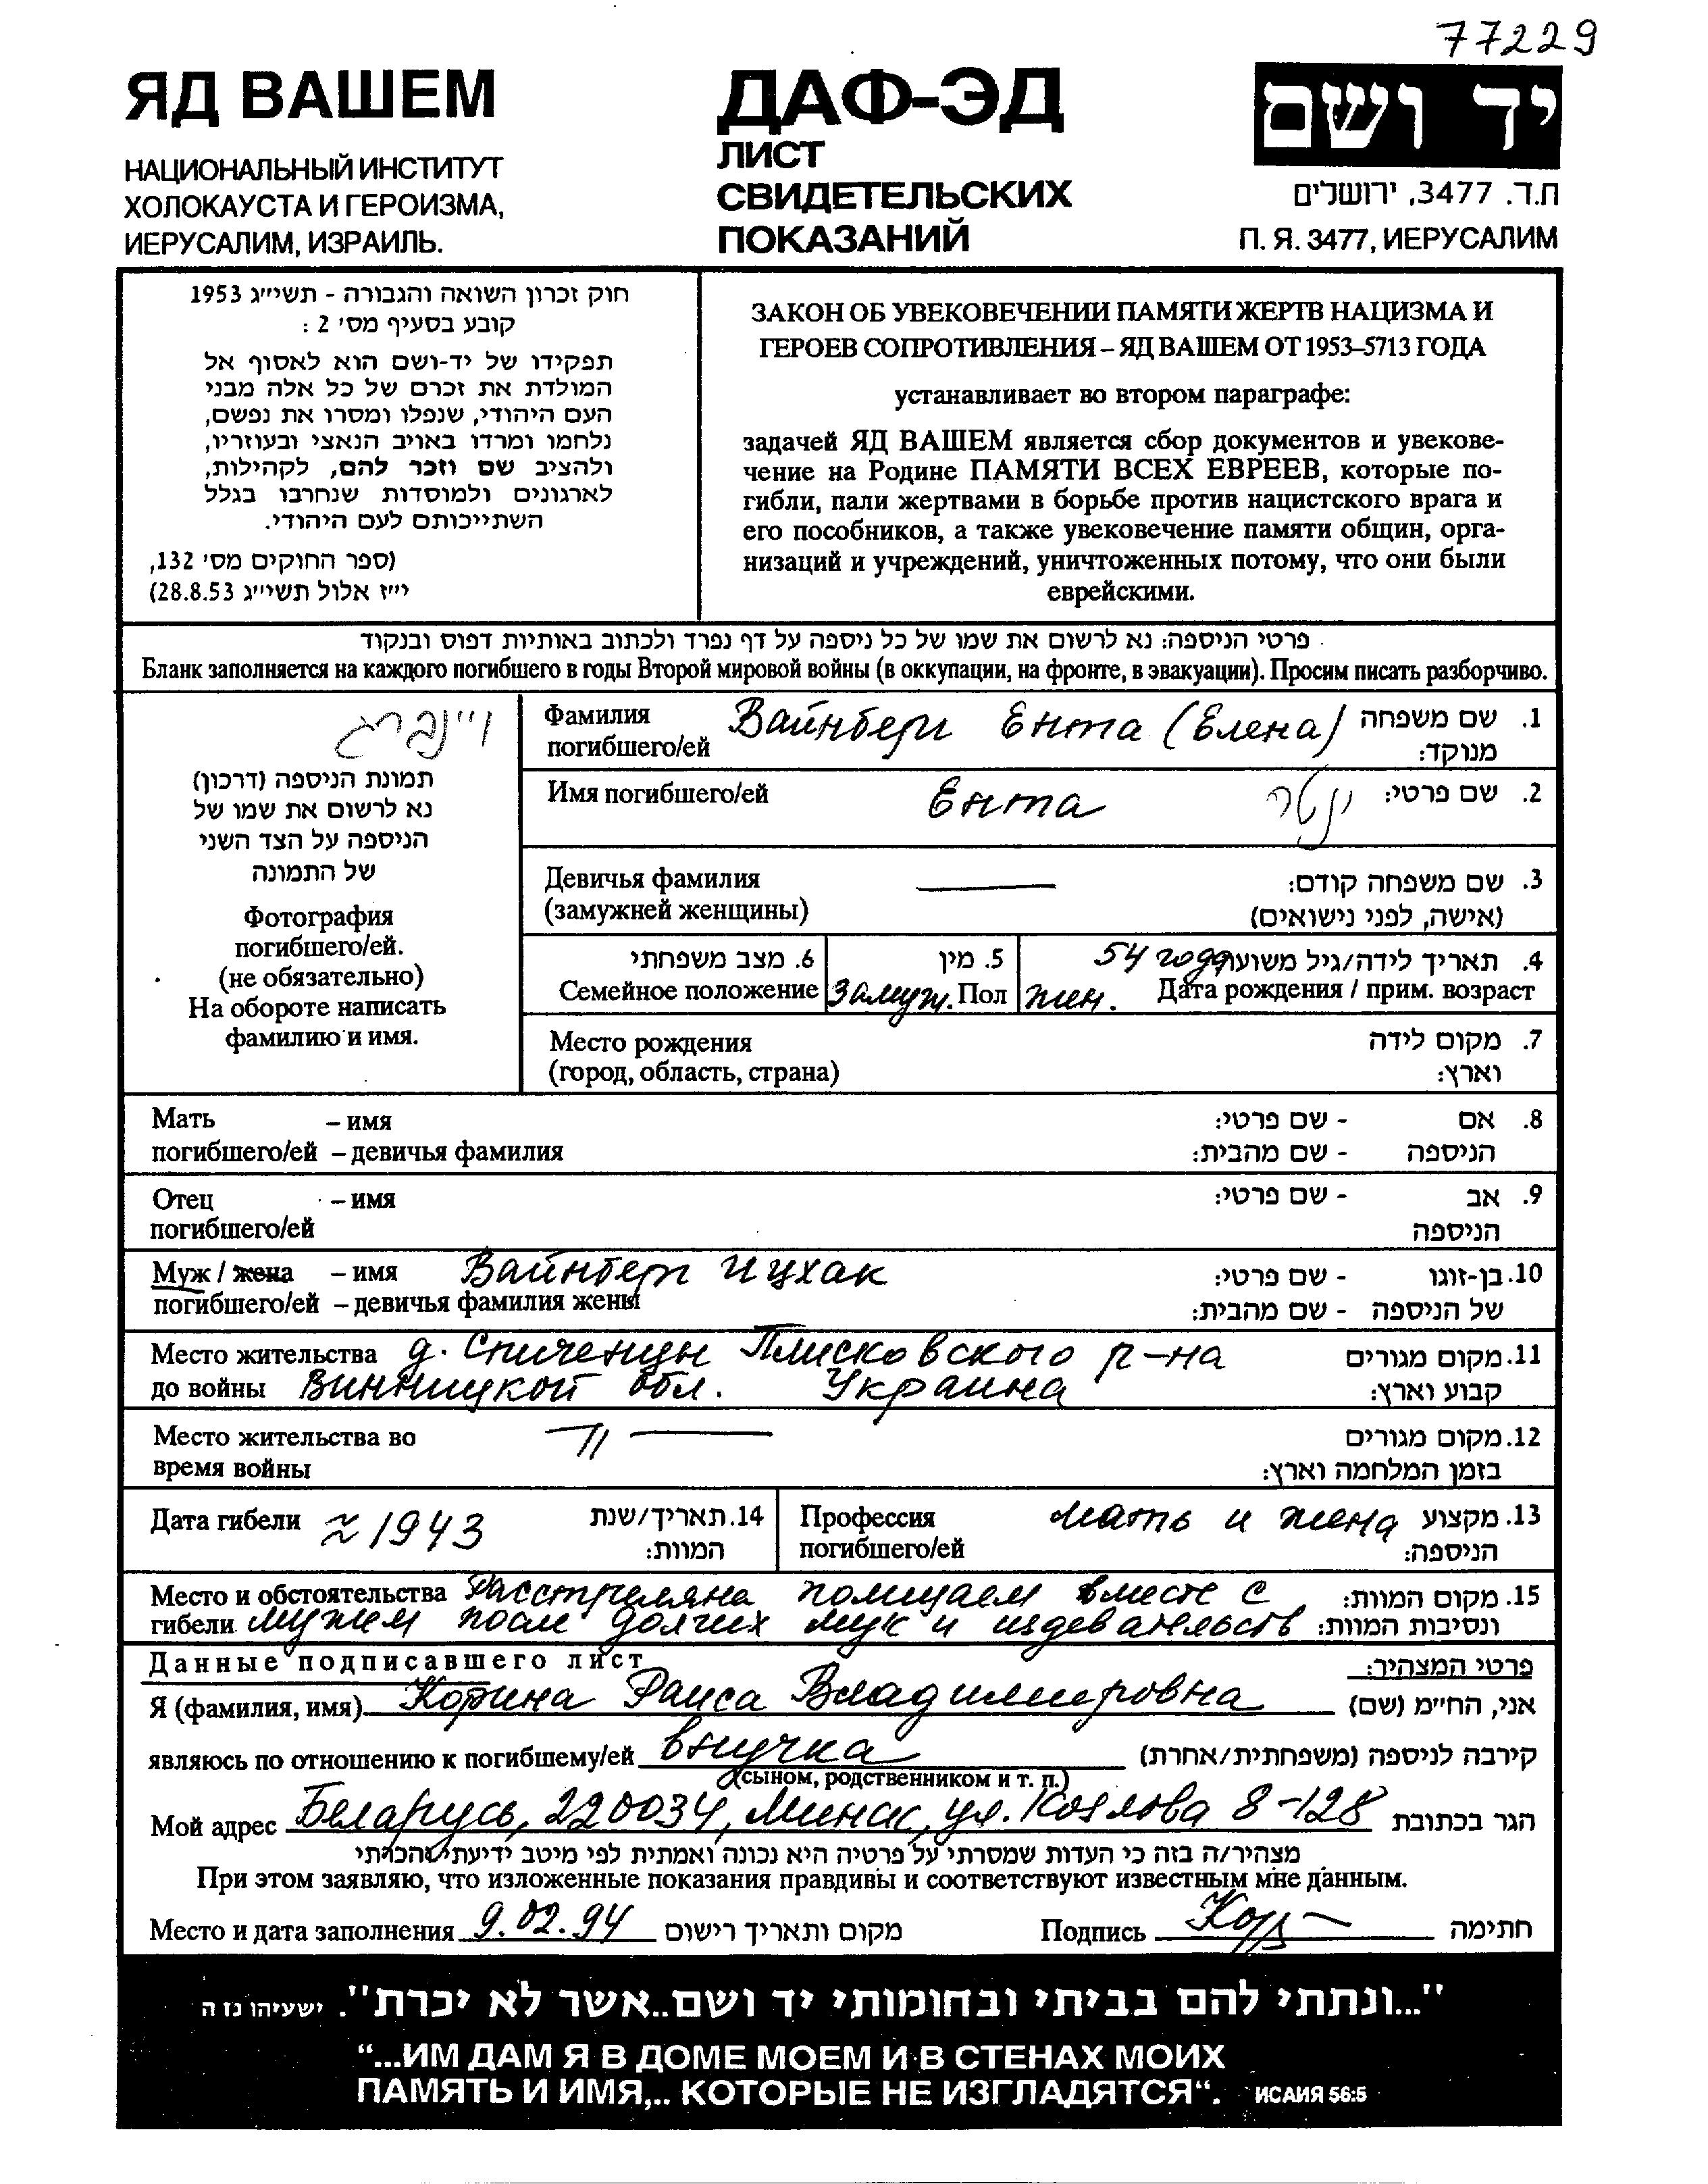 77229
ЯД ВАШЕМ
НАЦИОНАЛЬНЫЙ ИНСТИТУТ
ХОЛОКАУСТА И ГЕРОИЗМА,
ИЕРУСАЛИМ, ИЗРАИЛЬ.
ДАФ-ЭД
ЛИСТ
СВИДЕТЕЛЬСКИХ
ПОКАЗАНИЙ
יד ושם
ת.ד. 3477, ירושלים
П. Я. 3477, ИЕРУСАЛИМ
חוק זכרון השואה והגבורה - תשי״ג 1953
קובע בסעיף מס׳ 2 :
תפקידו של יד-ושם הוא לאסוף אל
המולדת את זכרם של כל אלה מבני
העם היהודי, שנפלו ומסרו את נפשם,
נלחמו ומרדו באויב הנאצי ובעוזריו,
ולהציב שם וזכר להם, לקהילות,
לארגונים ולמוסדות שנחרבו בגלל
השתייכותם לעם היהודי.
(ספר החוקים מס׳ 132,
י״ז אלול תשי״ג 28.8.53)
ЗАКОН ОБ УВЕКОВЕЧЕНИИ ПАМЯТИ ЖЕРТВ НАЦИЗМА И
ГЕРОЕВ СОПРОТИВЛЕНИЯ – ЯД ВАШЕМ ОТ 1953–5713 ГОДА
устанавливает во втором параграфе:
задачей ЯД ВАШЕМ является сбор документов и увекове-
чение на Родине ПАМЯТИ ВСЕХ ЕВРЕЕВ, которые по-
гибли, пали жертвами в борьбе против нацистского врага и
его пособников, а также увековечение памяти общин, орга-
низаций и учреждений, уничтоженных потому, что они были
еврейскими.
פרטי הניספה: נא לרשום את שמו של כל ניספה על דף נפרד ולכתוב באותיות דפוס ובנקוד
Бланк заполняется на каждого погибшего в годы Второй мировой войны (в оккупации, на фронте, в эвакуации). Просим писать разборчиво.
ויינברג
תמונת הניספה (דרכון)
נא לרשום את שמו של
הניספה על הצד השני
של התמונה
Фотография
погибшего/ей.
(не обязательно)
На обороте написать
фамилию и имя.
Фамилия Вайнберг Ента (Елена) 1. שם משפחה
погибшего/ей מנוקד:
Имя погибшего/ей Ента ינטה 2. שם פרטי:
Девичья фамилия 3. שם משפחה קודם:
(замужней женщины) (אישה, לפני נישואים)
6. מצב משפחתי 5. מין 54 года 4. תאריך לידה/גיל משוער
Семейное положение замуж. Пол жен. Дата рождения / прим. возраст
Место рождения 7. מקום לידה
(город, область, страна) וארץ:
Мать – имя 8. אם - שם פרטי:
погибшего/ей – девичья фамилия הניספה - שם מהבית:
Отец – имя 9. אב - שם פרטי:
погибшего/ей הניספה
Муж / жена – имя Вайнберг Ицхак 10. בן-זוגו - שם פרטי:
погибшего/ей – девичья фамилия жены של הניספה - שם מהבית:
Место жительства д. Спиченцы Плисковского р-на 11. מקום מגורים
до войны Винницкой обл. Украина קבוע וארץ:
Место жительства во –//– 12. מקום מגורים
время войны בזמן המלחמה וארץ:
Дата гибели ≈ 1943 14. תאריך/שנת המוות:
Профессия мать и жена 13. מקצוע
погибшего/ей הניספה:
Место и обстоятельства Расстреляна полицаем вместе с 15. מקום המוות:
гибели мужем после долгих мук и издевательств ונסיבות המוות:
Данные подписавшего лист פרטי המצהיר:
Я (фамилия, имя) Корина Раиса Владимировна אני, החי״מ (שם)
являюсь по отношению к погибшему/ей внучка קירבה לניספה (משפחתית/אחרת)
(сыном, родственником и т. п.)
Мой адрес Беларусь, 220034, Минск, ул. Козлова 8-128 הגר בכתובת
מצהיר/ה בזה כי העדות שמסרתי על פרטיה היא נכונה ואמתית לפי מיטב ידיעתי והכרתי
При этом заявляю, что изложенные показания правдивы и соответствуют известным мне данным.
Место и дата заполнения 9.02.94 מקום ותאריך רישום Подпись Кор חתימה
"...ונתתי להם בביתי ובחומותי יד ושם..אשר לא יכרת". ישעיהו נז ה
“...ИМ ДАМ Я В ДОМЕ МОЕМ И В СТЕНАХ МОИХ
ПАМЯТЬ И ИМЯ,.. КОТОРЫЕ НЕ ИЗГЛАДЯТСЯ“. ИСАИЯ 56:5